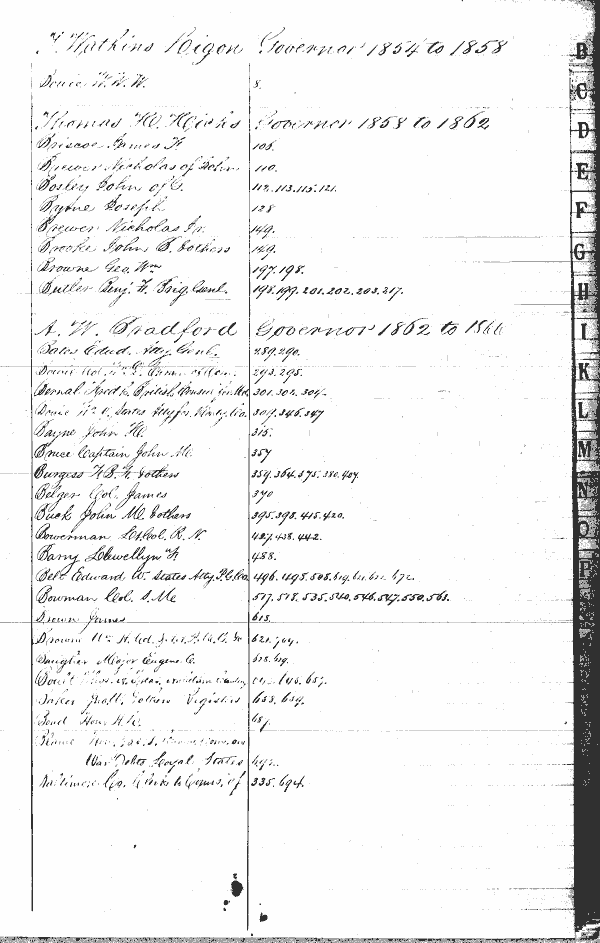 T. Watkins Ligon Governor 1854 to 1858
Bowie W. W. W. 8.
Thomas H. Hicks Governor 1858 to 1862
Briscoe James T. 106.
Brewer Nicholas of John 110.
Bosley John of G. 112. 113. 115. 121.
Byrne Joseph 128
Brewer Nicholas Jr. 149.
Brooke John B. & others 149.
Browne Geo. Wm 197. 198.
Butler Benj. F. Brig. Genl. 198. 199. 201. 202. 203. 217.
A. W. Bradford Governor 1862 to 1866
Bates Edwd. Atty. Genl. 289. 290.
Bowie Col. 293. 295.
Bernal Fredk. British Consul for Md. 301. 302. 304.
Bowie Wm States Atty for Co. 304. 346. 347
Bayne John H. 315.
Bruce Captain John M. 357
Burgess & others 359. 364. 375. 380. 407.
Belger Col. James 370
Buck John M. & others 395. 398. 415. 420.
Bowerman Lt. Col. R. N. 427. 428. 442.
Barry Llewellyn F. 488.
Belt Edward W. States Atty P. G. Co. 496. 498. 508. 672.
Bowman Col. S. M. 517. 518. 535. 540. 546. 547. 550. 563.
Brown James 615.
Browne Wm H. Col. 621.
Baughter Major Eugene C. 618. 619.
Bond Hon. 687.
War Debts Loyal States 692.
Baltimore Co. Clerk to Comrs. of 335. 694.
B
C
D
E
F
G
H
I
K
L
M
N
O
P